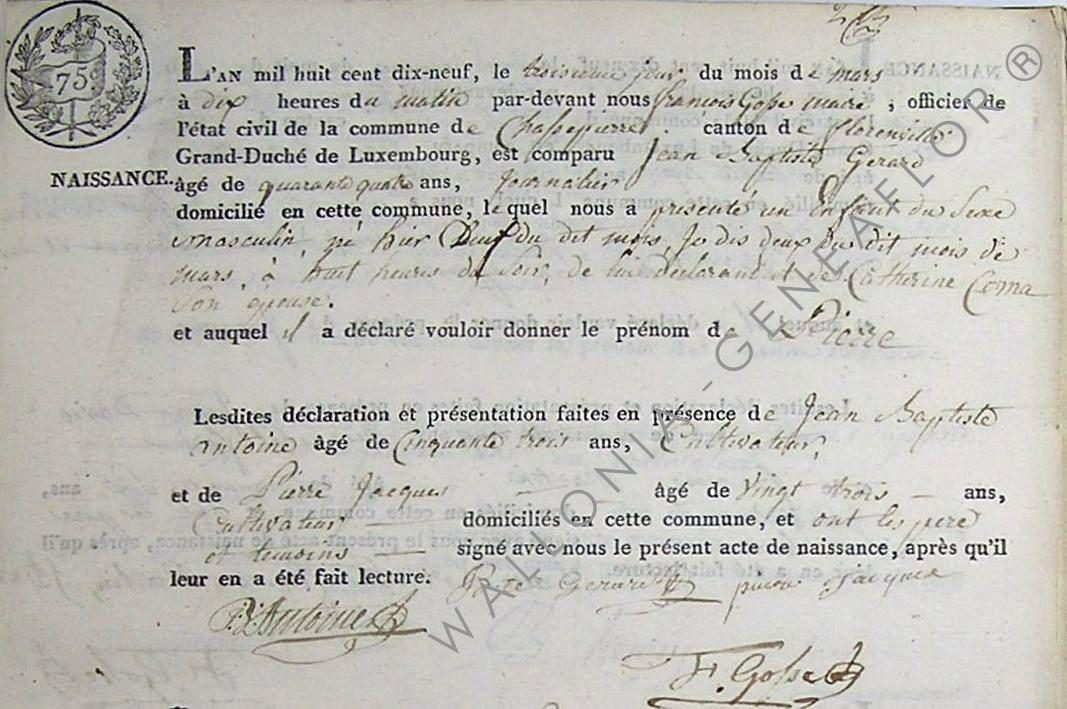 75
L'AN mil huit cent dix-neuf, le troisieme jour du mois de mars
à dix heures du matin par-devant nous françois Gosse maire, officier de
l'état civil de la commune de Chassepierre. canton de florenville
Grand-Duché de Luxembourg, est comparu Jean Baptiste Gerard
NAISSANCE. âgé de quarante quatre ans, Journalier
domicilié en cette commune, lequel nous a presenté un Enfant du Sexe
masculin, né hier du dit mois, Je dis deux du dit mois de
mars, à huit heures du Soir, de lui declarant et de Catherine Coma
Son epouse.
et auquel il a déclaré vouloir donner le prénom de Pierre
Lesdites déclaration et présentation faites en présence de Jean Baptiste
antoine âgé de Cinquante trois ans, Cultivateur,
et de Pierre Jacques âgé de Vingt trois ans,
Cultivateur domiciliés en cette commune, et ont les pere
et temoins signé avec nous le présent acte de naissance, après qu'il
leur en a été fait lecture. Gerard pierre Jacques
Antoine
F. Gosse
WALLONIA-GENEAFLOR®